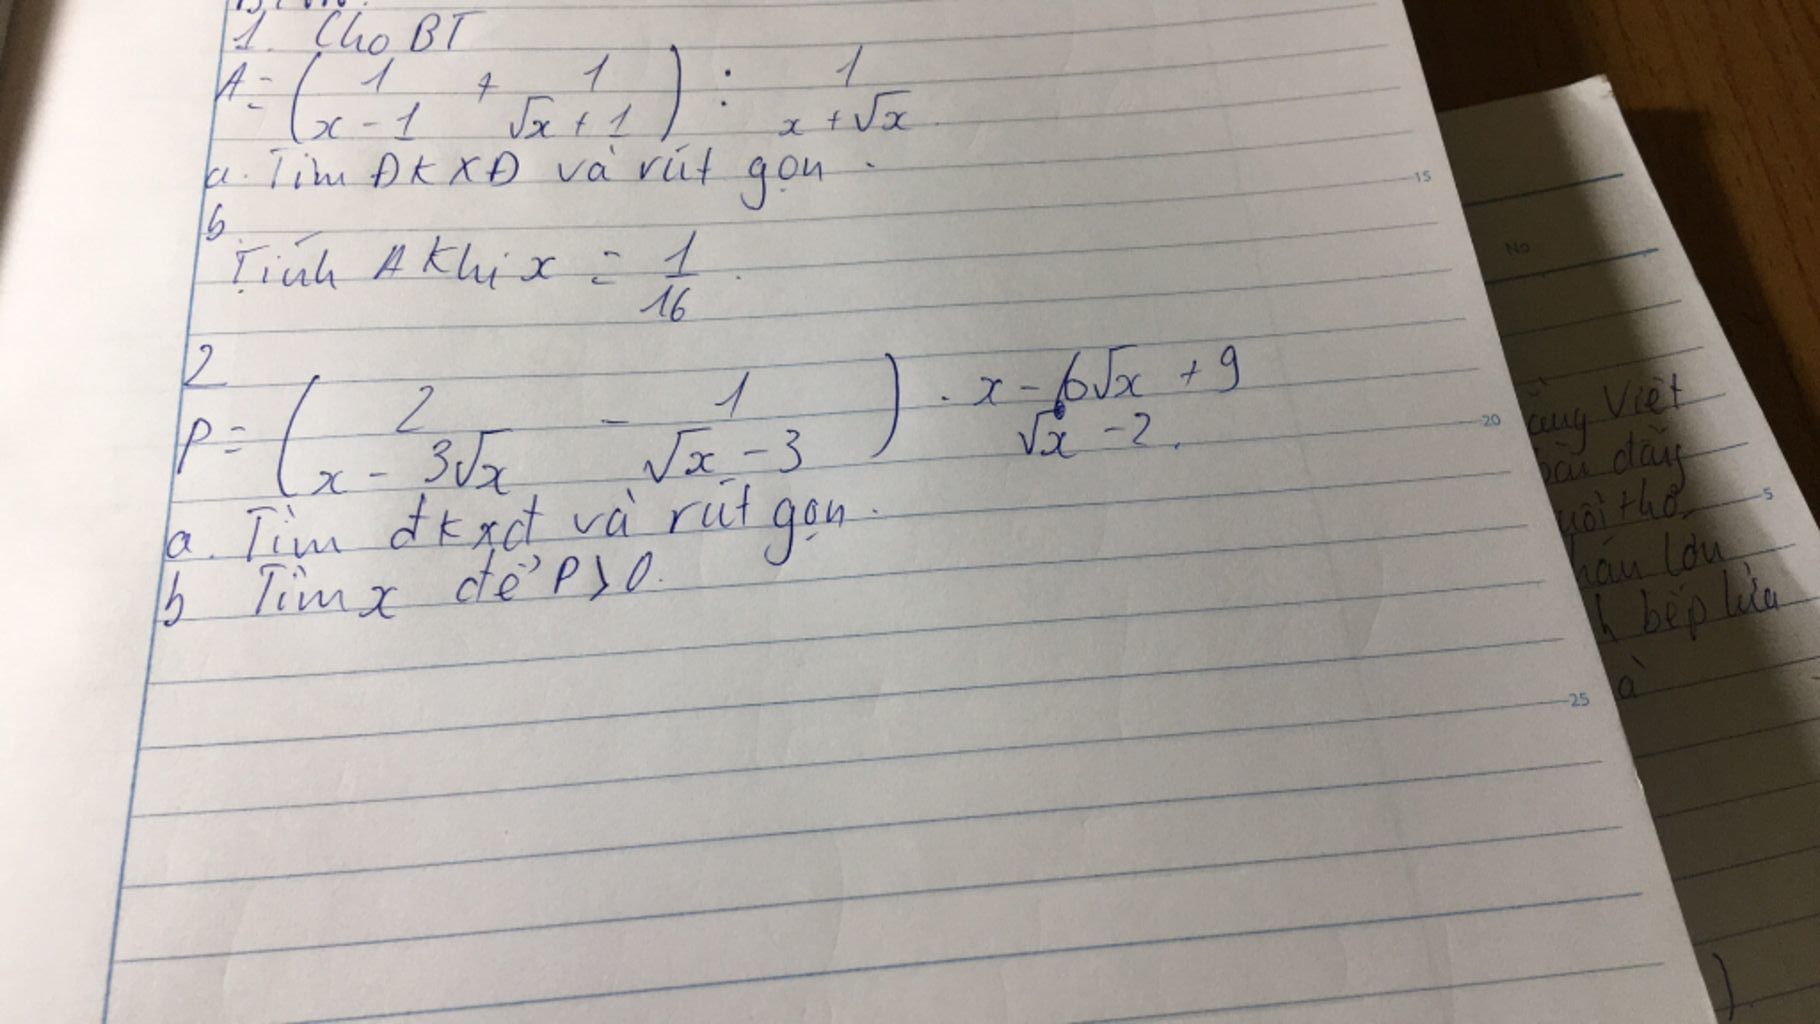 1. Cho BT
A = ( 1/(x - 1) + 1/(√x + 1) ) : 1/(x + √x)
a. Tìm ĐKXĐ và rút gọn.
b
Tính A khi x = 1/16.
2
P = ( 2/(x - 3√x) - 1/(√x - 3) ) . (x - 6√x + 9)/(√x - 2).
a. Tìm đkxđ và rút gọn.
b Tìm x để P > 0.
15
20
25
No
Việt
5
bếp lửa
à
)